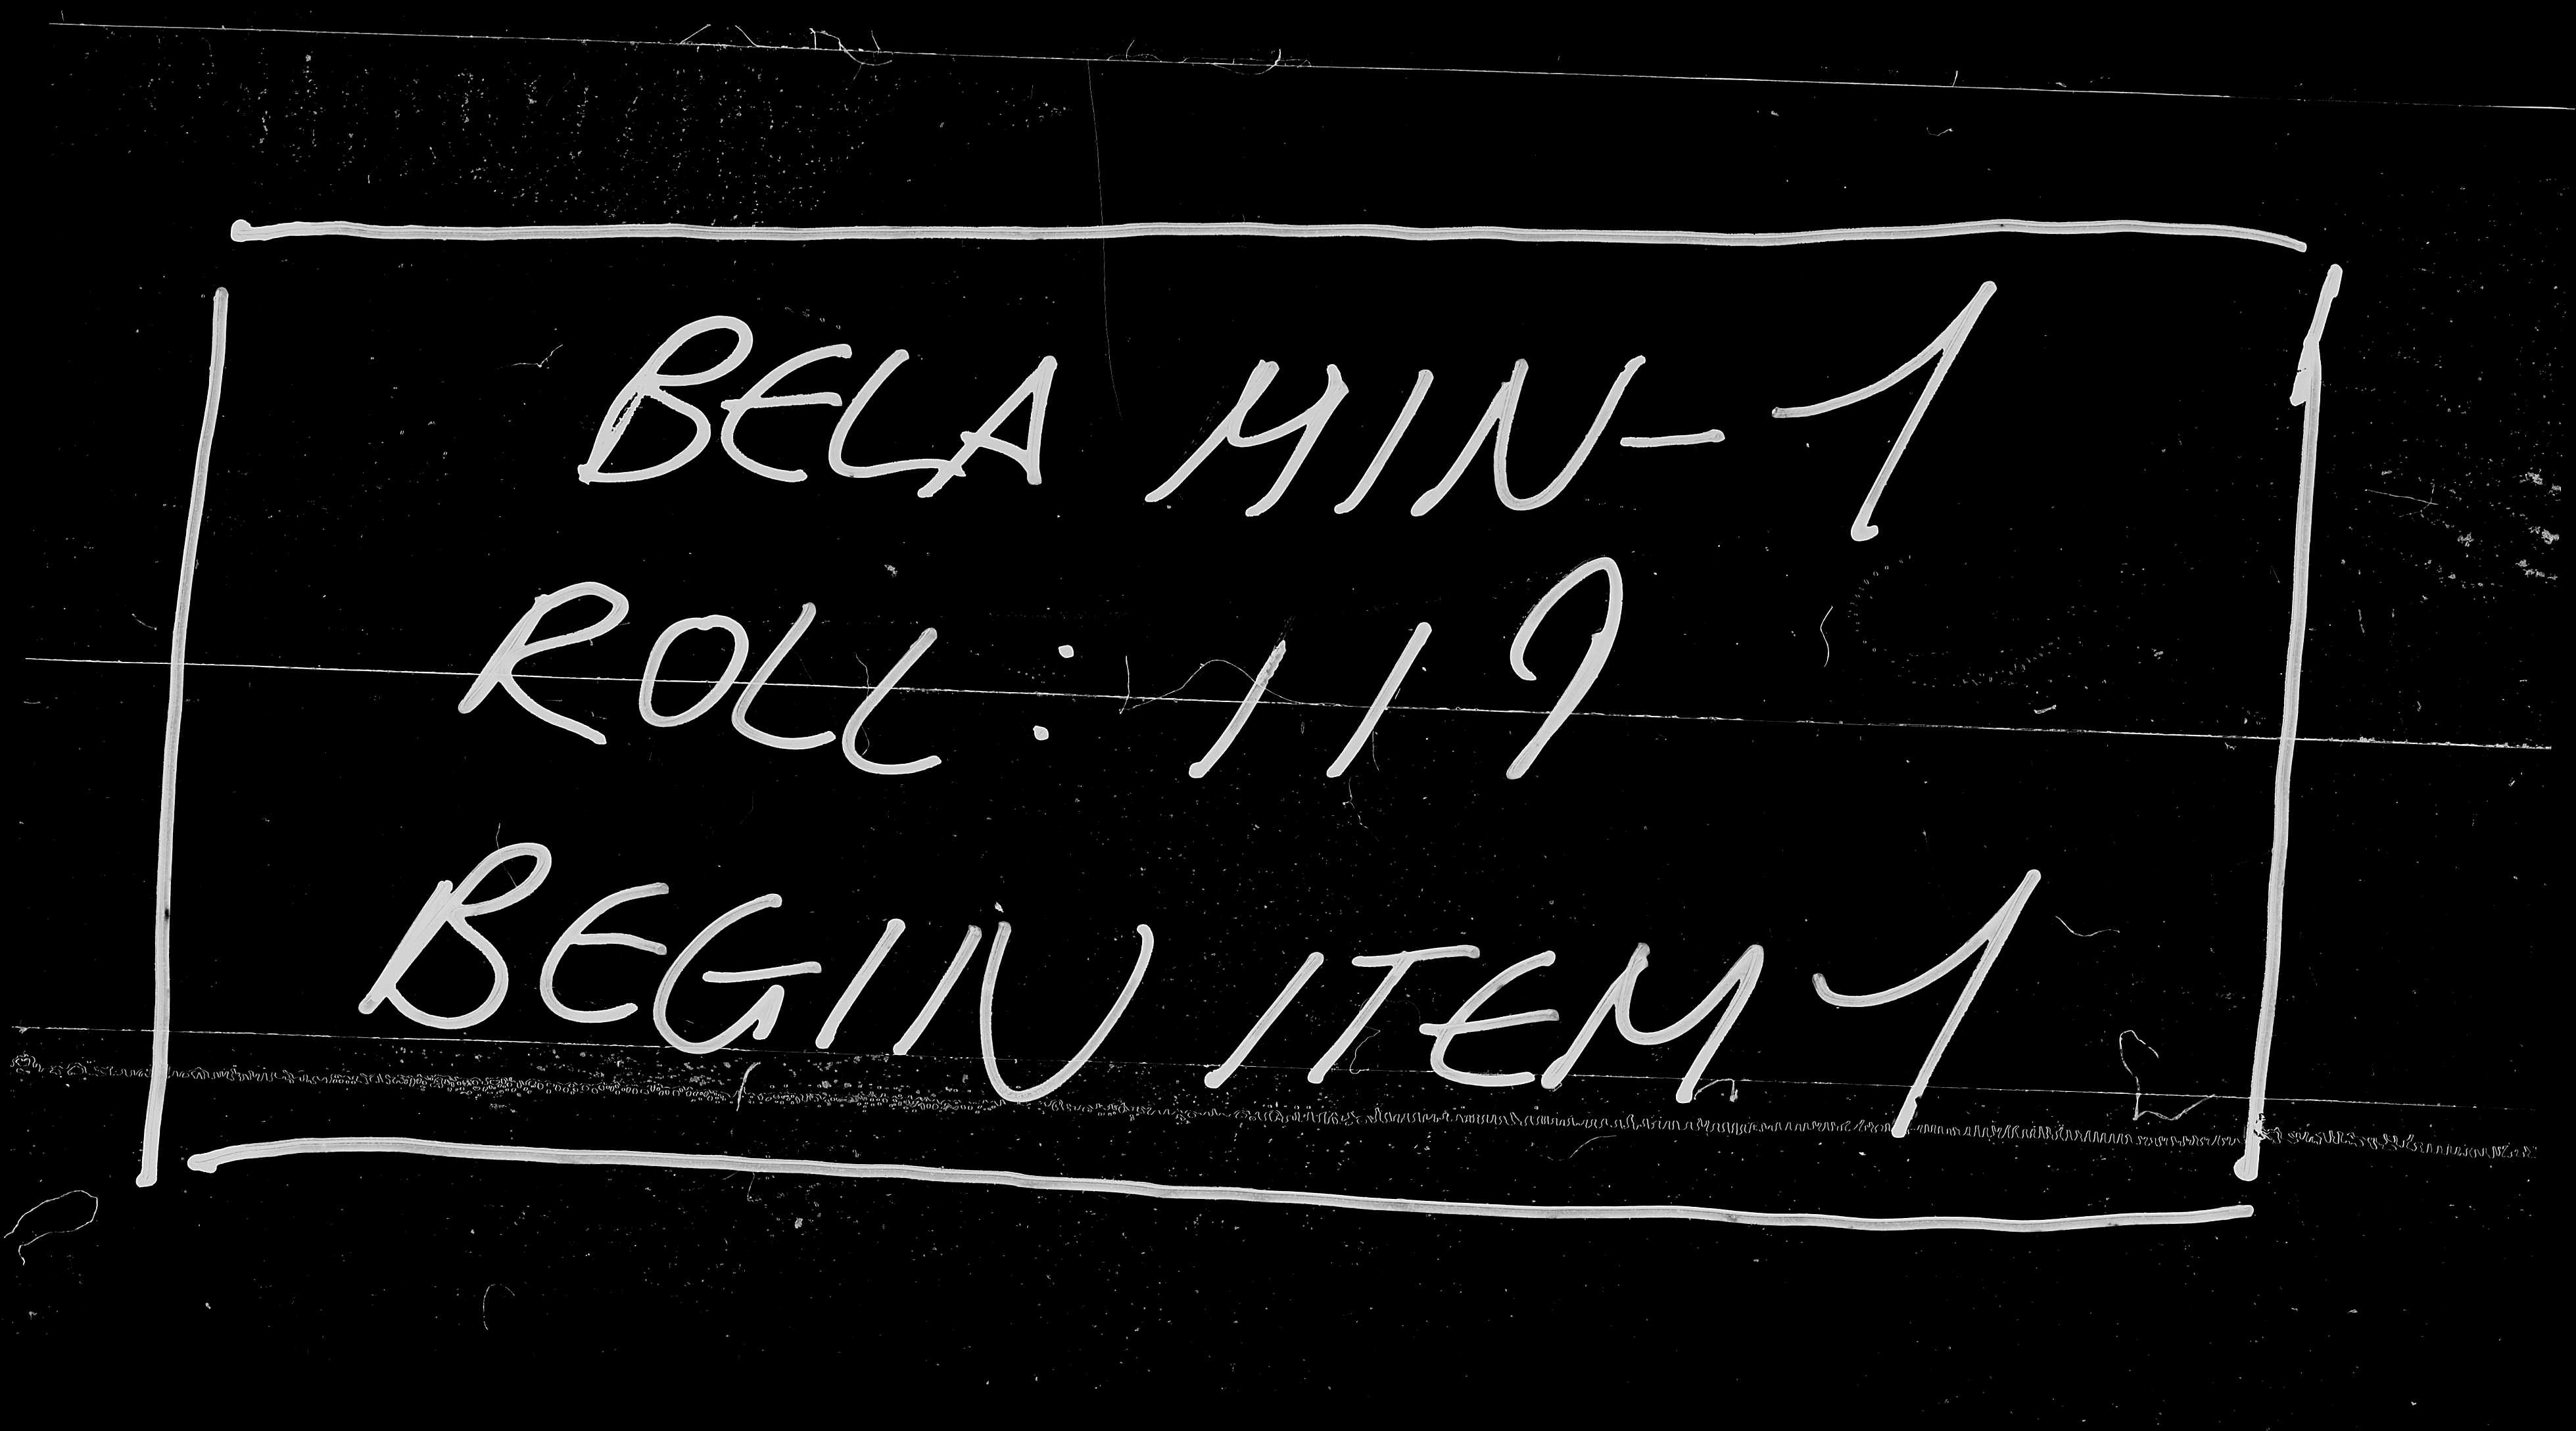 BELA MIN-1
ROLL: 119
BEGIN ITEM 1